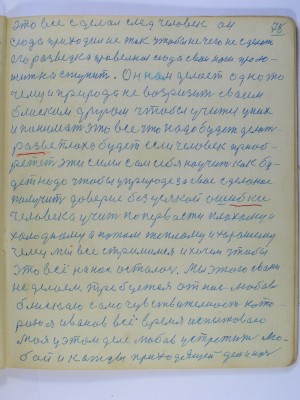 78
это все сделал след человек он
сюда приходил не так чтобы нечего не сделат
его разведка провелики сюда свои ноги проло-
жит на ступит. Он нам делает одно то
чему и природа не возразит своим
близким другом чтобы учится у них
и понимат это все что надо будет дет
разве плохо будет если человек приоб-
ретет эти сили сам себя научит как бу-
дет надо чтобы у природе за свое сделаное
получит доверие без всякой ошибки
человека учит по первости плохому и
холодному а потом теплому и хорошему
чему мы все стремимся и хочем чтобы
это всё на нас осталос. Мы этого сваи
не делаем требуется от нас любов
близкаю самочувствителност кото-
рая иванов всё время испытовало
моя у этом деле любов устретит лю-
бой и кажды приходящей денинак